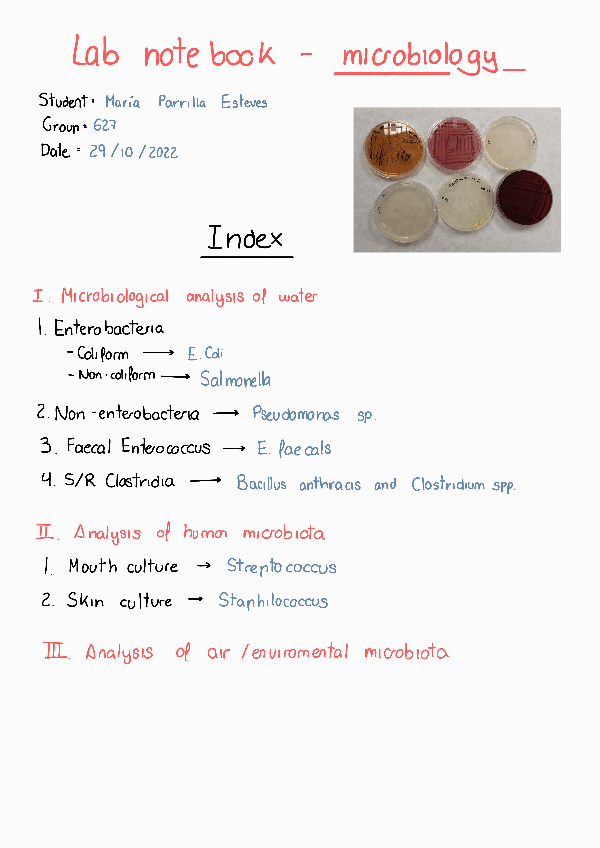 Lab notebook - microbiology_
Student: María Parrilla Esteves
Group: 627
Date: 29/10/2022
Index
I. Microbiological analysis of water
1. Enterobacteria
- Coliform → E. Coli
- Non-coliform → Salmonella
2. Non-enterobacteria → Pseudomonas sp.
3. Faecal Enterococcus → E. faecals
4. S/R Clostridia → Bacillus anthracis and Clostridium spp.
II. Analysis of human microbiota
1. Mouth culture → Streptococcus
2. Skin culture → Staphilococcus
III. Analysis of air/enviromental microbiota